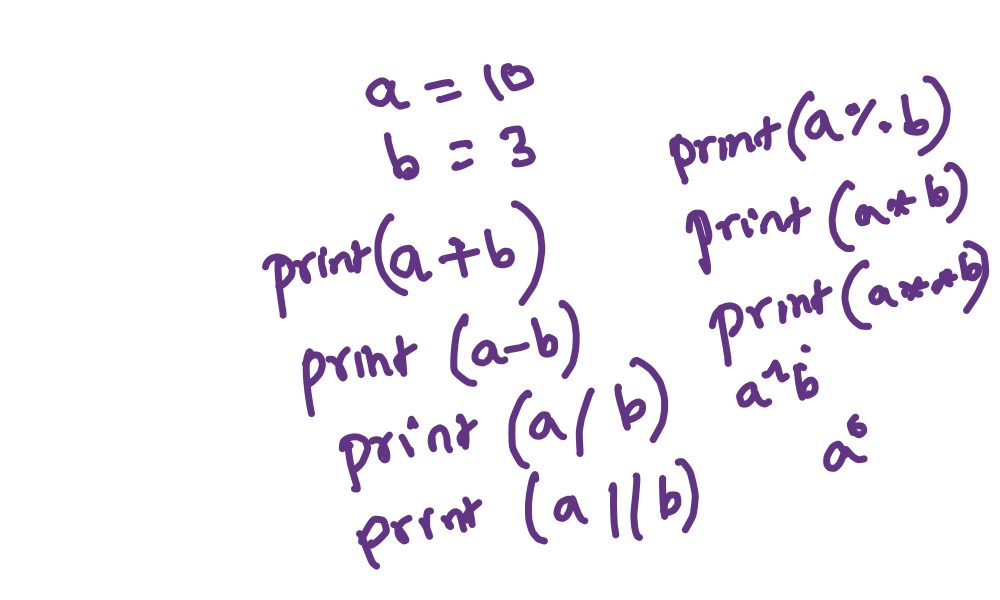 a = 10
b = 3
print(a+b)
print (a-b)
print (a/b)
print (a//b)
print(a%b)
print (a*b)
print (a**b)
a^b